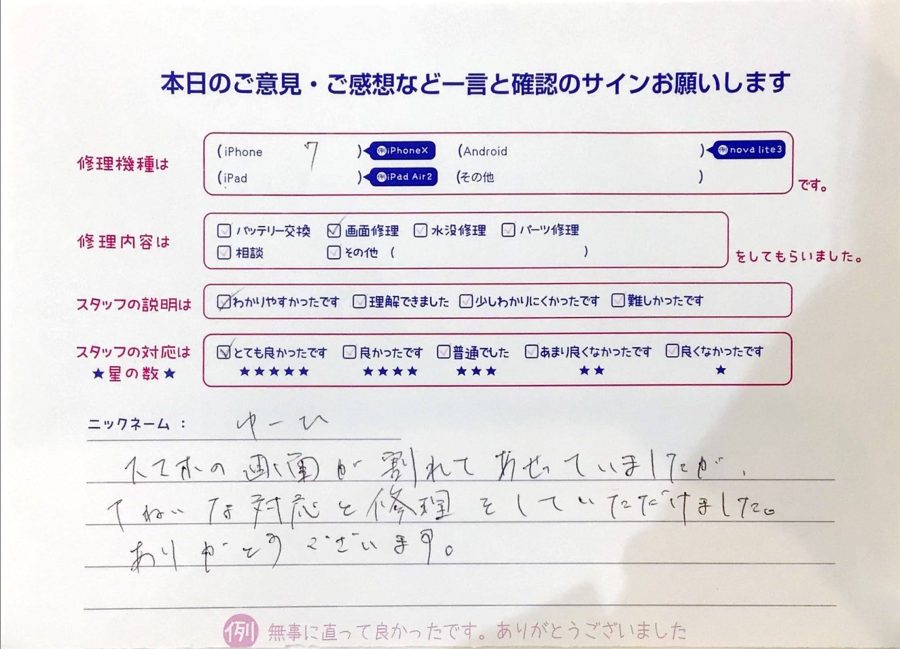 本日のご意見・ご感想など一言と確認のサインお願いします
修理機種は
(iPhone 7 ) 例iPhoneX (Android ) 例nova lite3
(iPad ) 例iPad Air2 (その他 )
です。
修理内容は
☐バッテリー交換 ☑画面修理 ☐水没修理 ☐パーツ修理
☐相談 ☐その他 ( )
をしてもらいました。
スタッフの説明は ☑わかりやすかったです ☐理解できました ☐少しわかりにくかったです ☐難しかったです
スタッフの対応は ☑とても良かったです ☐良かったです ☐普通でした ☐あまり良くなかったです ☐良くなかったです
★星の数★ ★★★★★ ★★★★ ★★★ ★★ ★
ニックネーム: ゆーひ
スマホの画面が割れてあせっていましたが、
ていねいな対応と修理をしていただけました。
ありがとうございます。
例 無事に直って良かったです。ありがとうございました